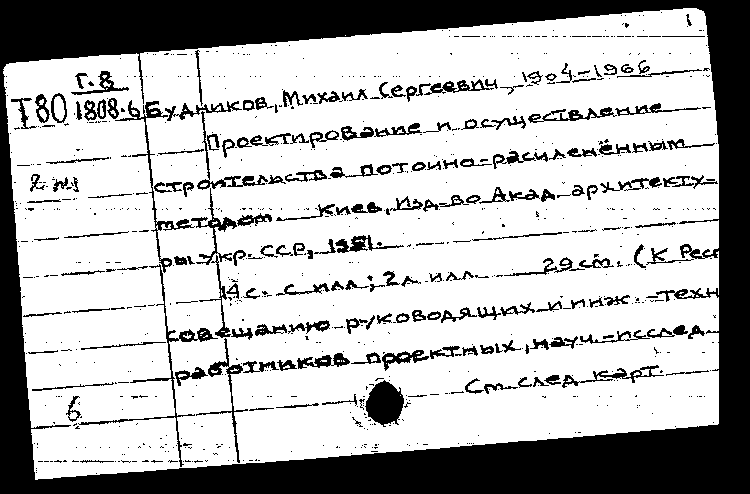 1
Г.8
Т80 1808.6 Будников, Михаил Сергеевич, 1904-1966
Проектирование и осуществление
2 экз строительства поточно-расчленённым
методом. Киев, Изд-во Акад. архитекту-
ры Укр. ССР, 1951.
14 с. с илл; 2 л. илл. 29 см. (К Респ
совещанию руководящих и инж.-техн
работников проектных, науч.-исслед.
6 См. след карт.